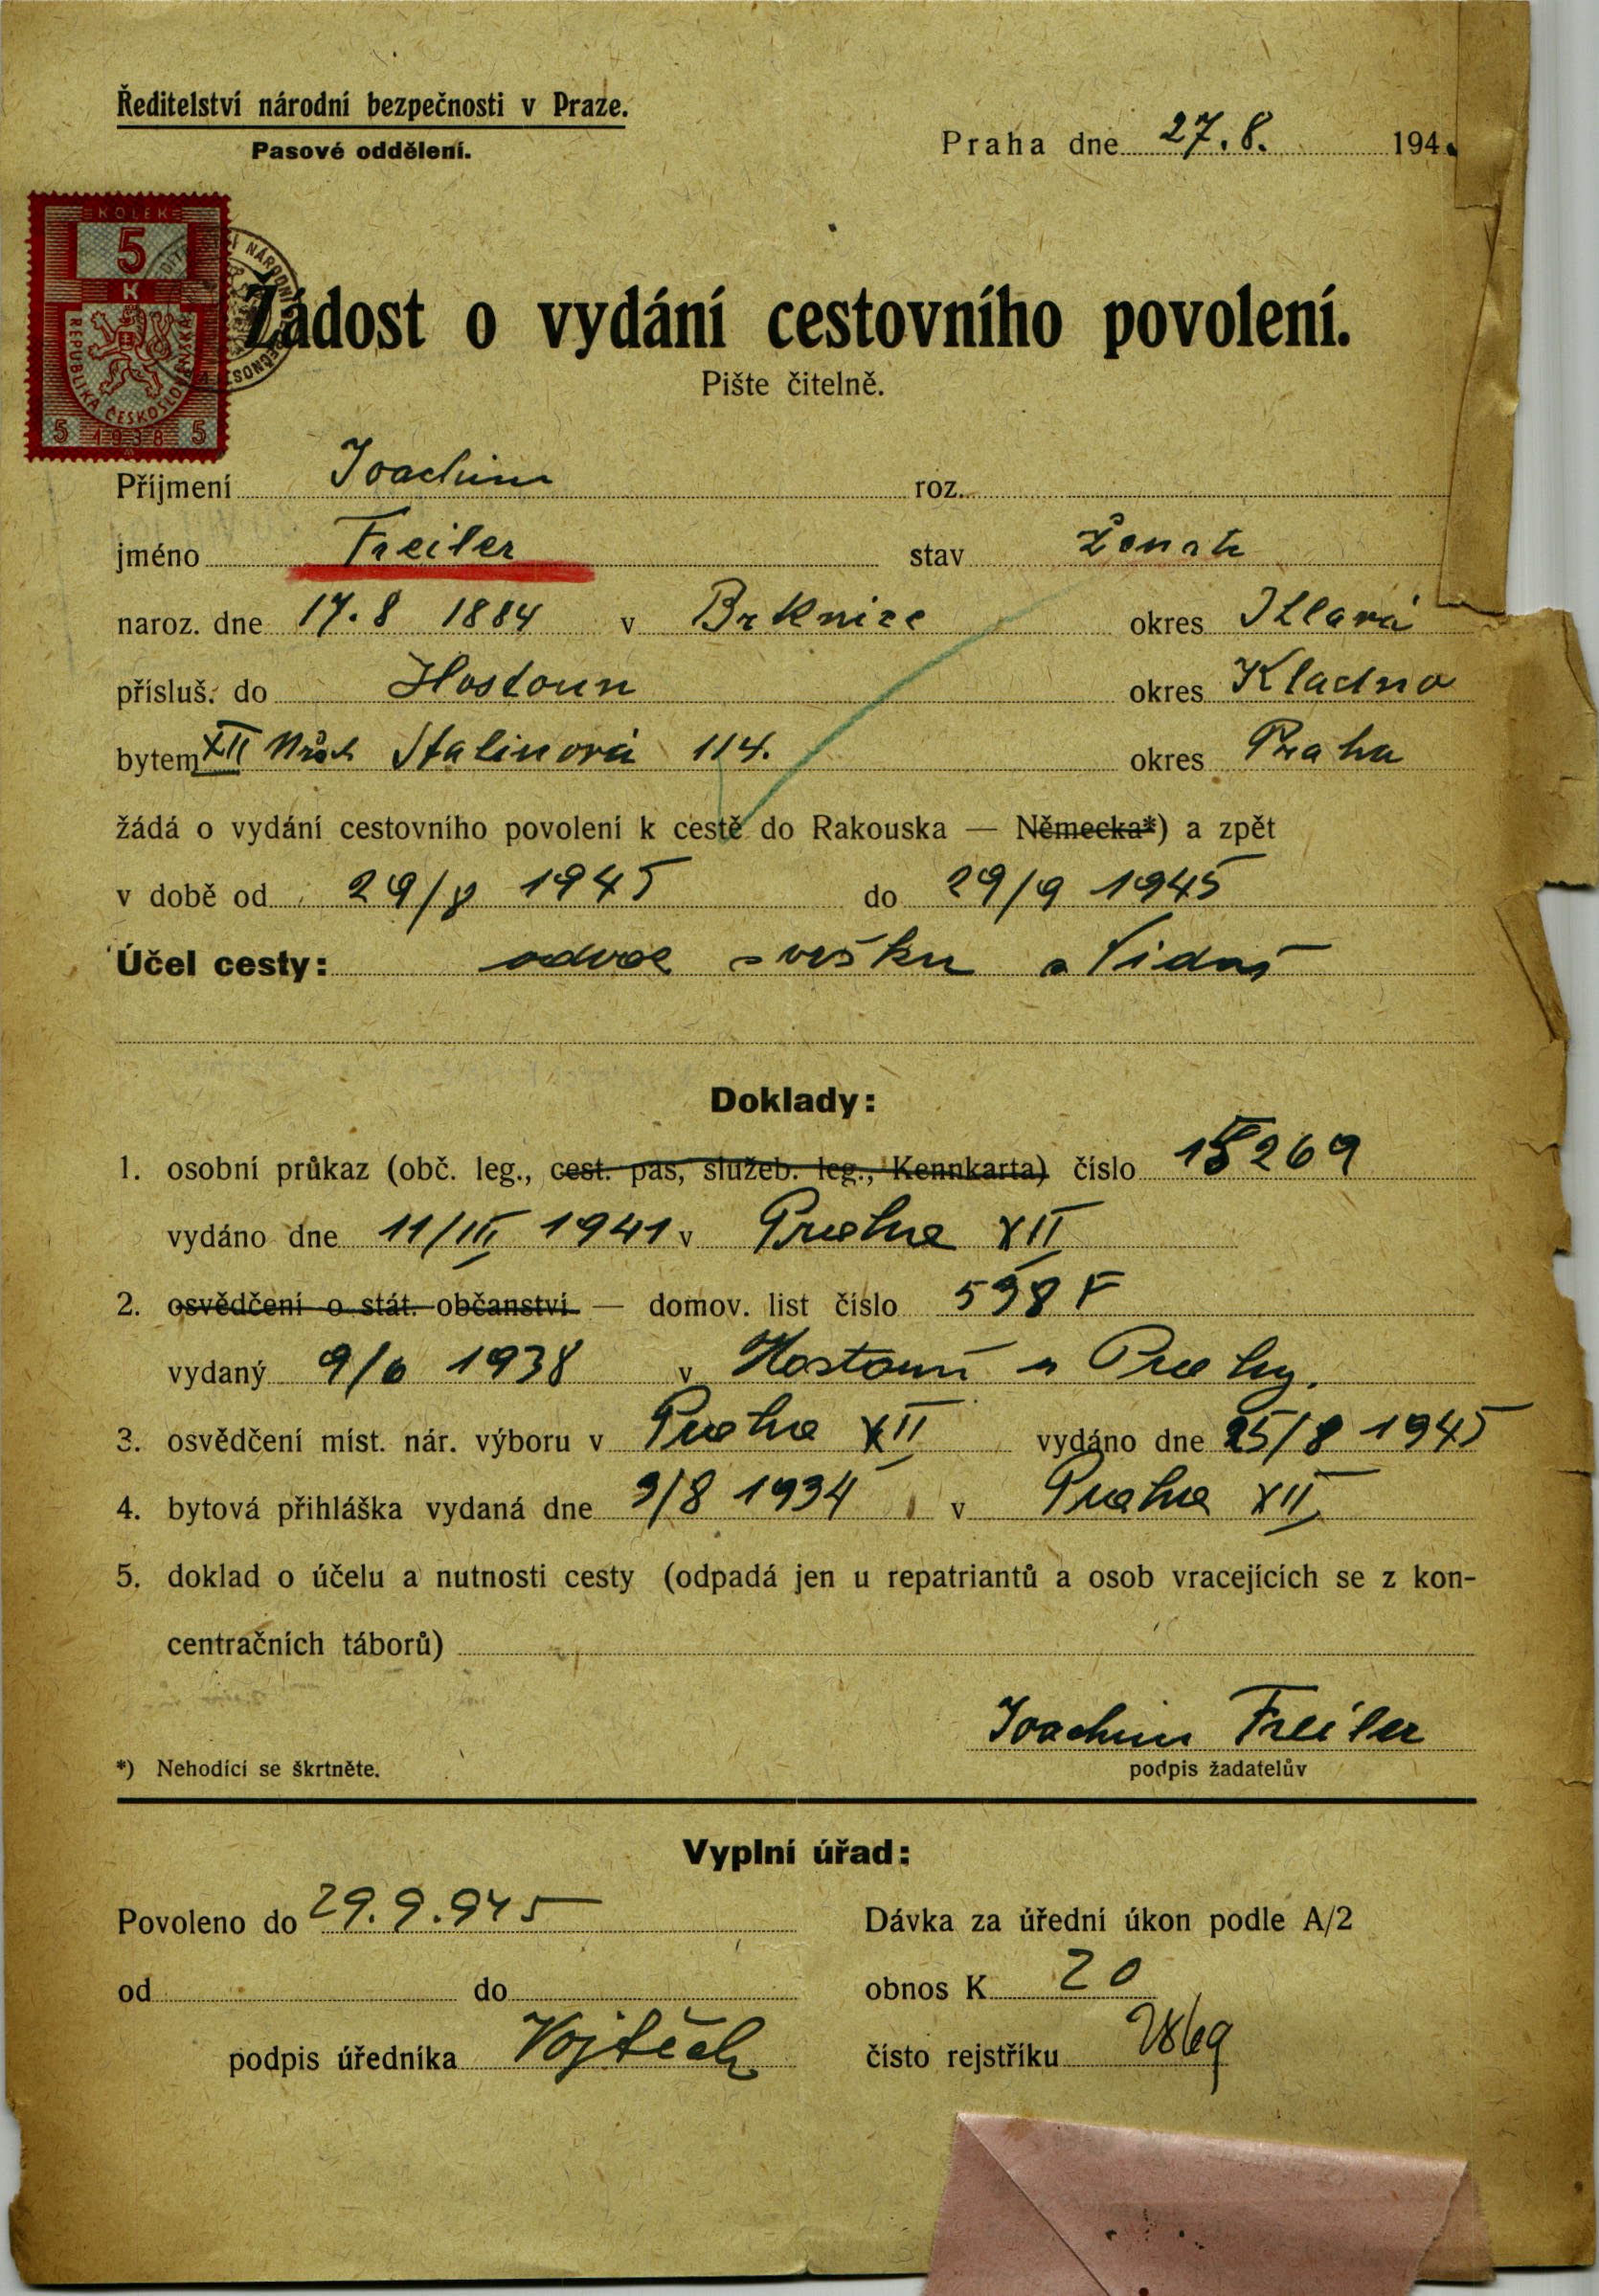 Ředitelství národní bezpečnosti v Praze.
Pasové oddělení.
Praha dne 27. 8. 194
KOLEK
5
K
REPUBLIKA ČESKOSLOVENSKÁ
5 1938 5
Žádost o vydání cestovního povolení.
Pište čitelně.
Příjmení Joachim roz.
jméno Freiler stav
naroz. dne 17.8 1884 v Brtnice okres Jhlavá
přísluš. do Hostoun okres Kladno
bytem XII Stalinová 114. okres Praha
žádá o vydání cestovního povolení k cestě do Rakouska — Německa*) a zpět
v době od 29/8 1945 do 29/9 1945
Účel cesty:
Doklady:
1. osobní průkaz (obč. leg., cest. pas, služeb. leg., Kennkarta) číslo 15269
vydáno dne 11/III 1941 v Praha XII
2. osvědčení o stát. občanství — domov. list číslo 598
vydaný 9/6 1938 v Hostouni u Prahy.
3. osvědčení míst. nár. výboru v Praha XII vydáno dne 25/8 1945
4. bytová přihláška vydaná dne 9/8 1934 v Praha XII
5. doklad o účelu a nutnosti cesty (odpadá jen u repatriantů a osob vracejících se z kon-
centračních táborů)
Joachim Freiler
*) Nehodící se škrtněte.
podpis žadatelův
Vyplní úřad:
Povoleno do 29.9.945 Dávka za úřední úkon podle A/2
od do obnos K 20
podpis úředníka Vojtěch čísto rejstříku